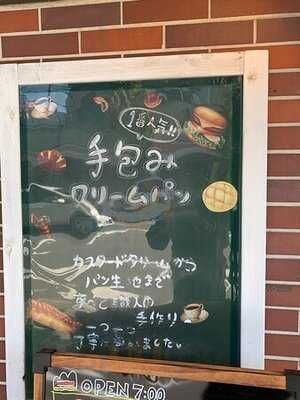 1番人気!!
手包み
クリームパン
カスタードクリームから
パン生地まで
職人の
手作り。
一つ一つ
丁寧に
ました。
OPEN 7:00